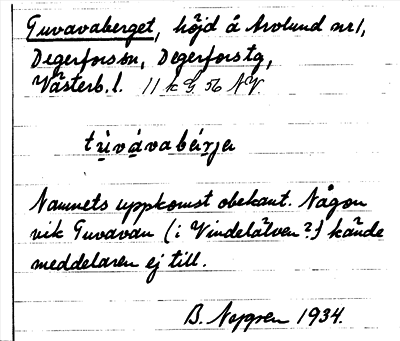 Tuvavaberget, höjd å Avolund nr 1,
Degerforssn, Degerforstg,
Västerb.l. 11 k G. 56 NV.
tùvávabǽrja
Namnets uppkomst obekant. Någon
vik Tuvavan (i Vindelälven?) kände
meddelaren ej till.
B. Nygren 1934.